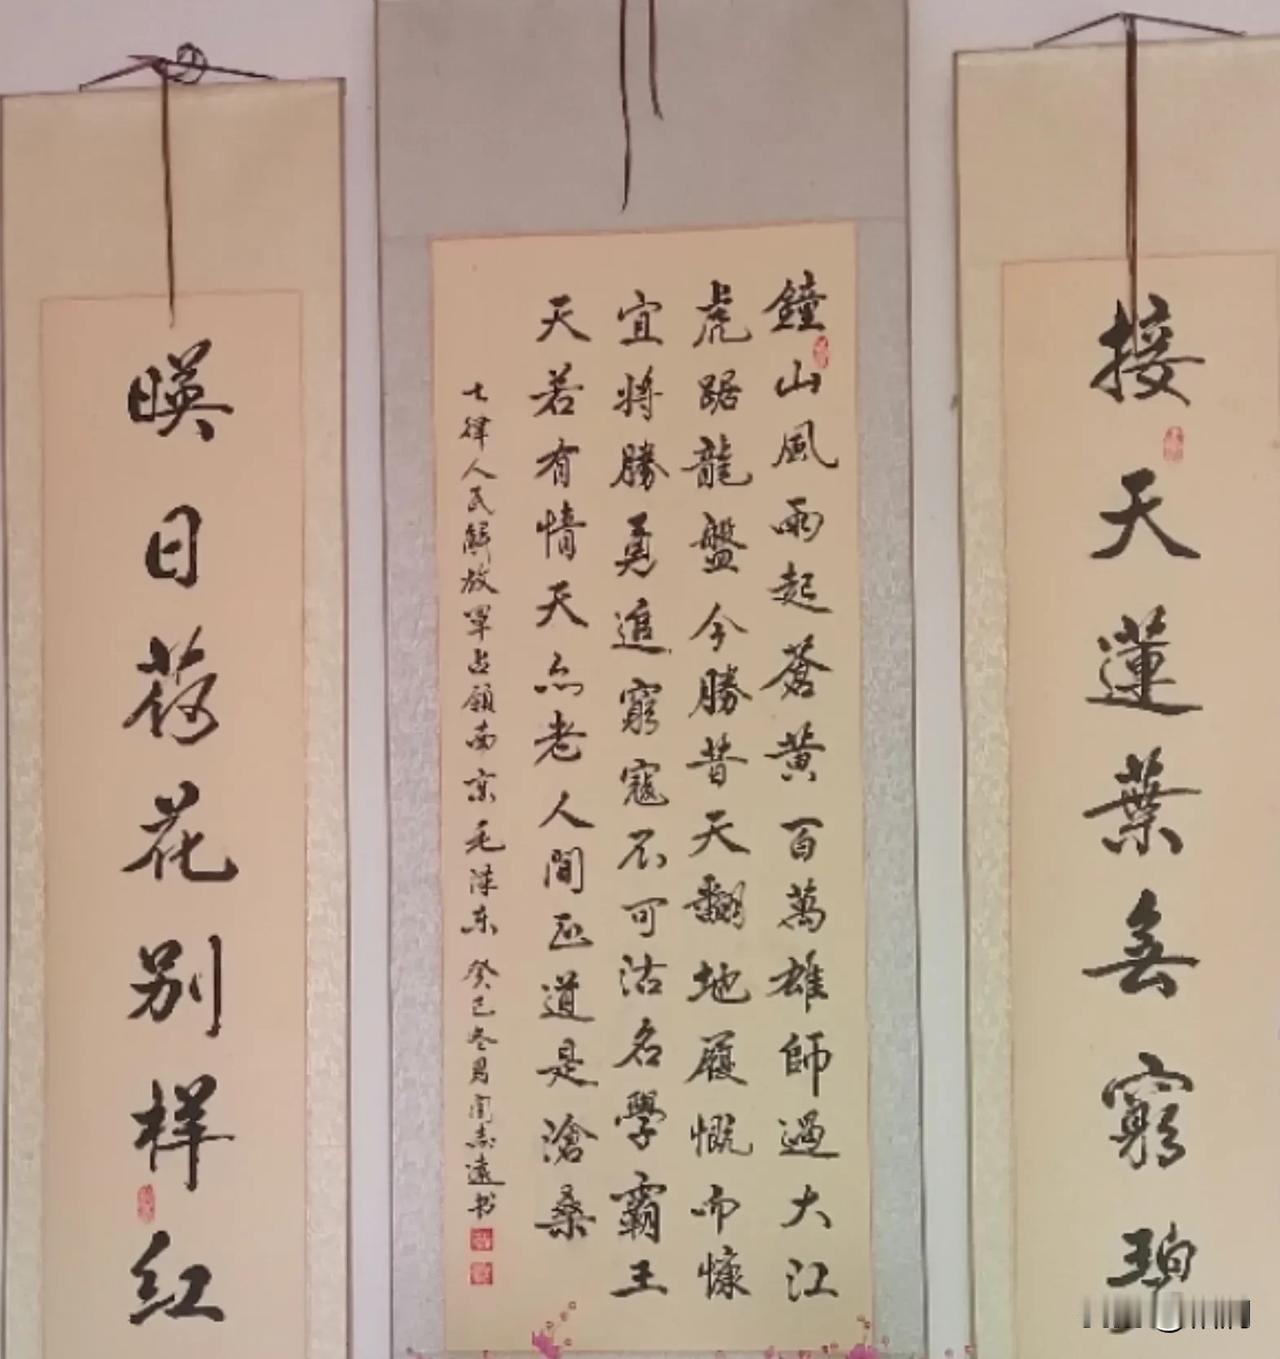 接天蓮葉無窮碧
鐘山風雨起蒼黃百萬雄師過大江
虎踞龍盤今勝昔天翻地履慨而慷
宜將勝勇追窮寇不可沽名學霸王
天若有情天亦老人間正道是滄桑
七律人民解放軍占領南京毛泽东 癸巳冬月志遠书
暎日荷花别样红